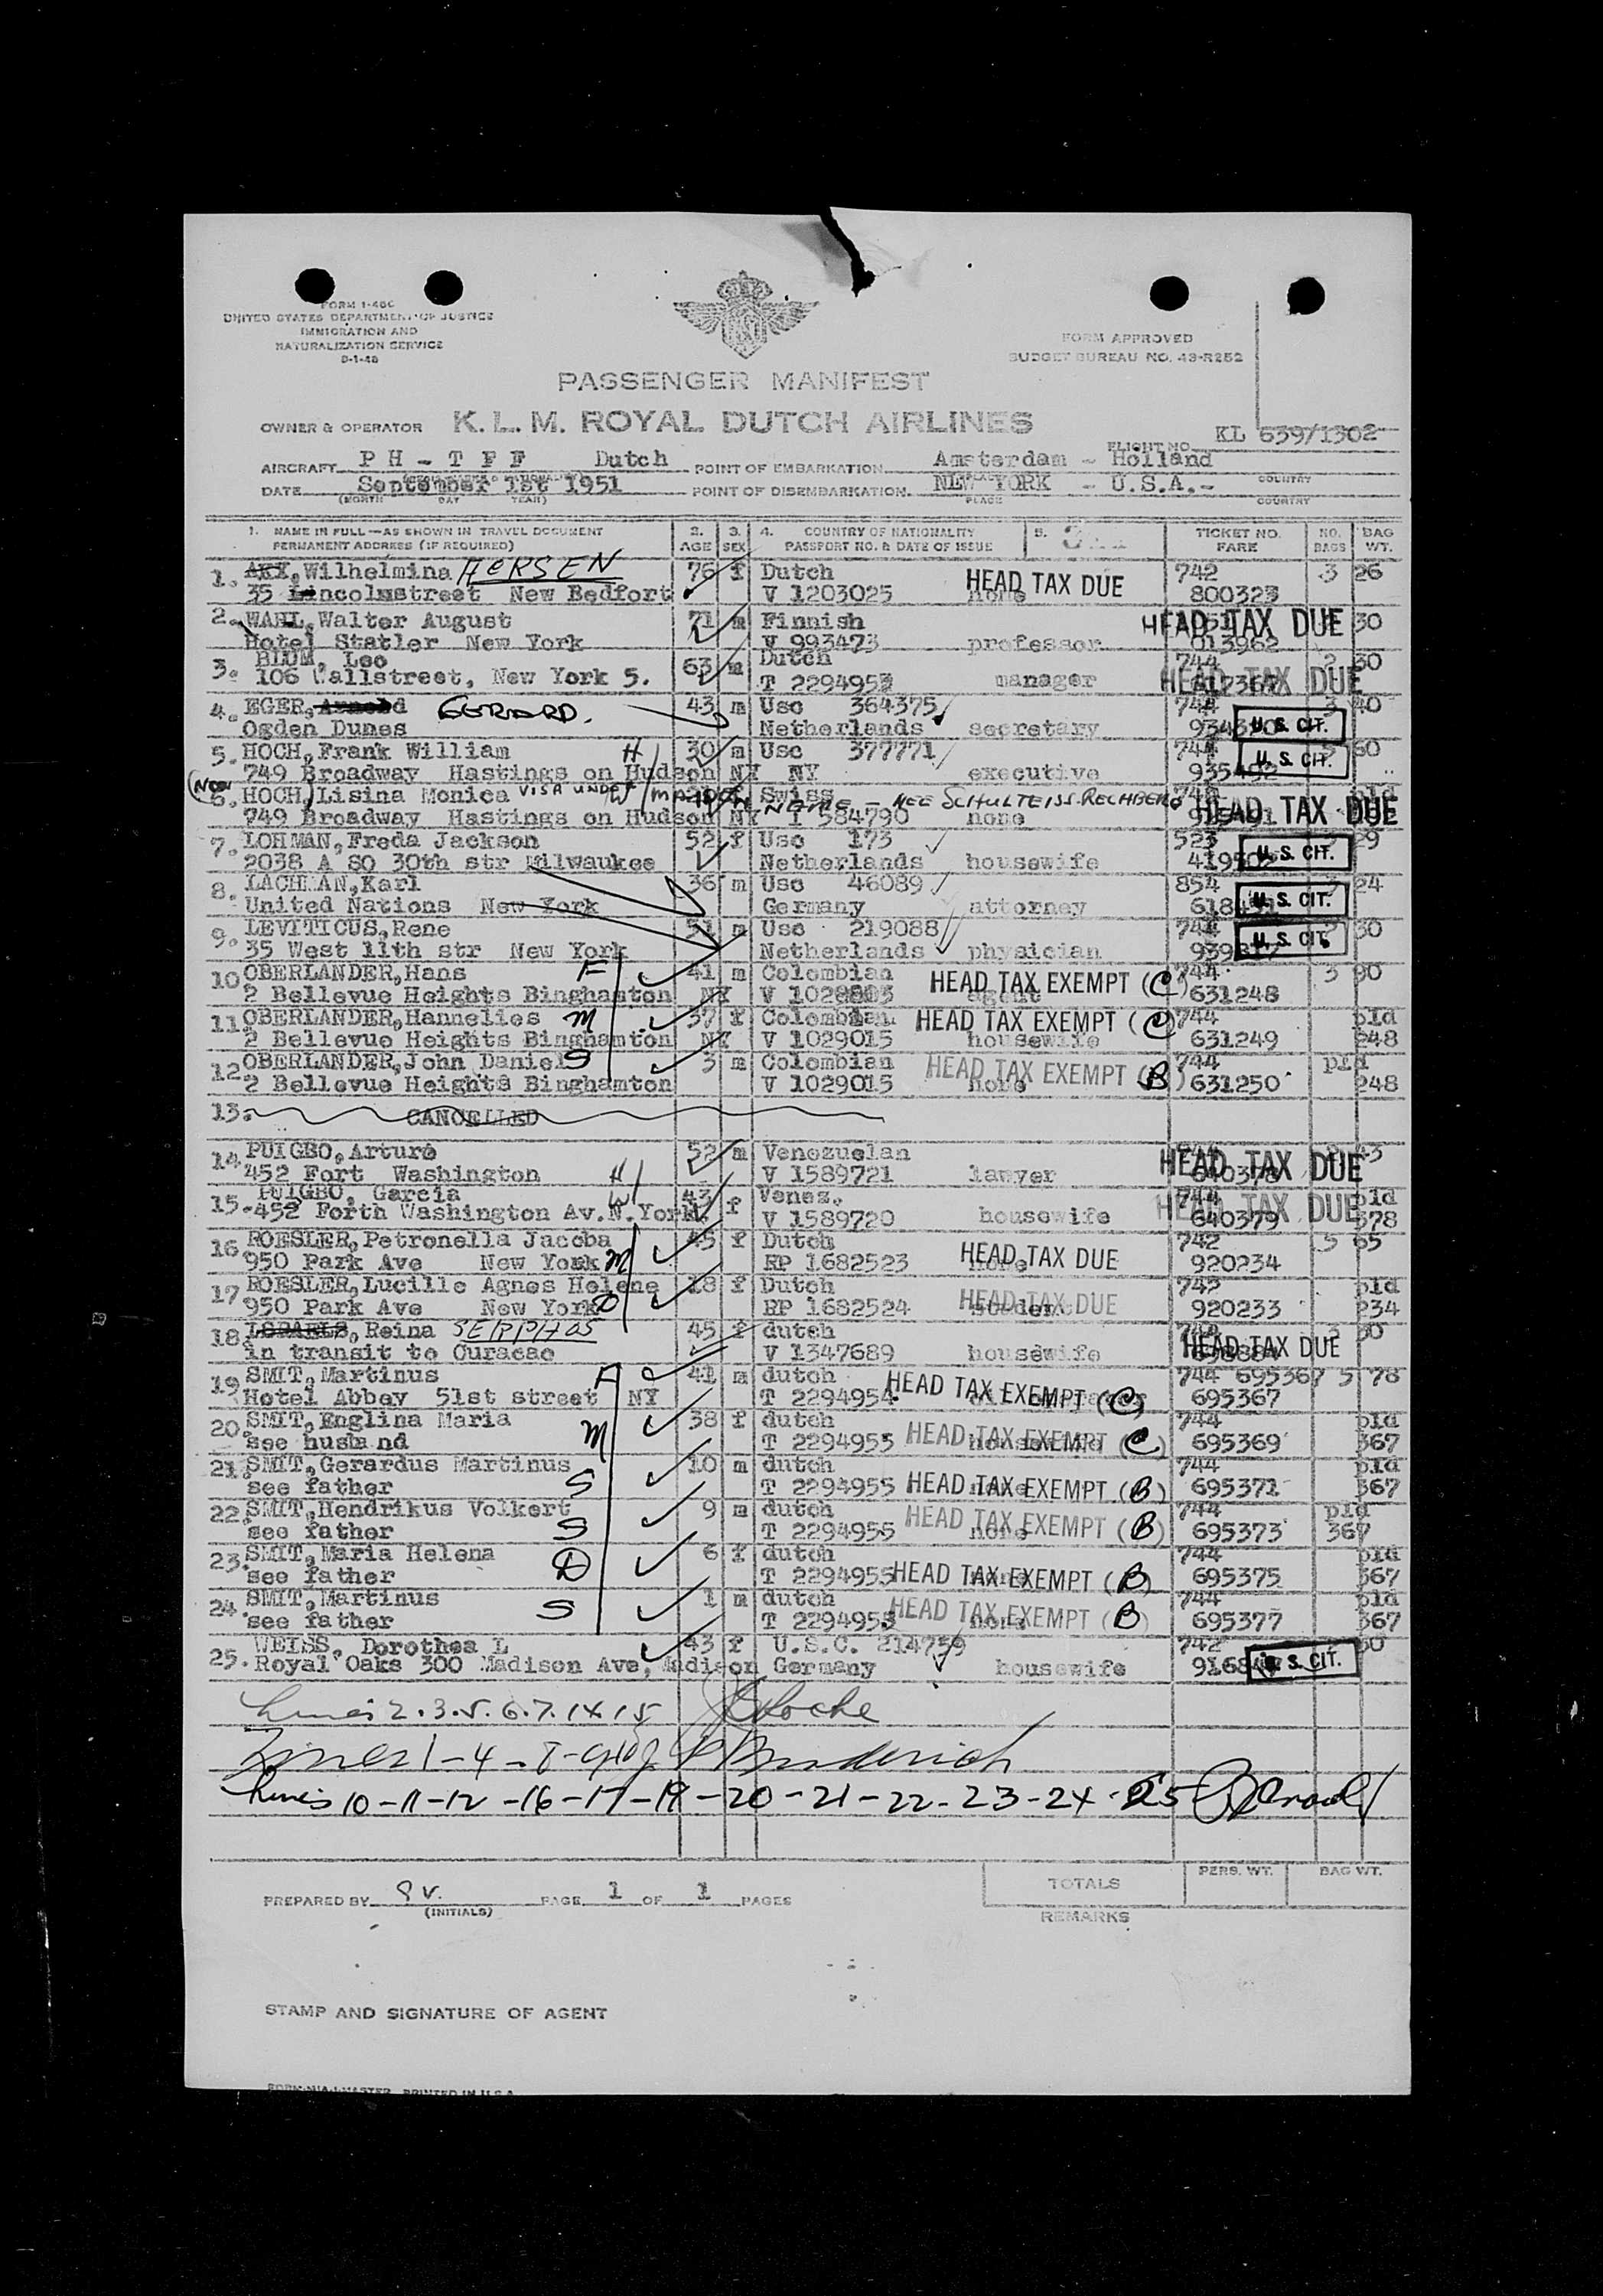 FORM I-466
UNITED STATES DEPARTMENT OF JUSTICE
IMMIGRATION AND
NATURALIZATION SERVICE
FORM APPROVED
BUDGET BUREAU NO. 43-R252
PASSENGER MANIFEST
OWNER & OPERATOR K. L. M. ROYAL DUTCH AIRLINES
FLIGHT NO. KL 639/1302
AIRCRAFT PH - TFF Dutch POINT OF EMBARKATION Amsterdam - Holland
DATE September 1st 1951 POINT OF DISEMBARKATION NEW YORK - U.S.A.-
(MONTH DAY YEAR) PLACE COUNTRY
1. NAME IN FULL—AS SHOWN IN TRAVEL DOCUMENT 2. 3. 4. COUNTRY OF NATIONALITY 5. TICKET NO. NO. BAG
PERMANENT ADDRESS (IF REQUIRED) AGE SEX PASSPORT NO. & DATE OF ISSUE FARE BAGS WT.
1. Wilhelmina HERSEN 76 f Dutch HEAD TAX DUE 742 3 26
35 Lincolnstreet New Bedfort V 1203025 none 800323
2. WAHL, Walter August 71 m Finnish HEAD TAX DUE 30
Hotel Statler New York V 993473 professor 013962
3. BLUM, Leo 63 m Dutch 744 2 30
106 Wallstreet, New York 5. T 2294952 manager HEAD TAX DUE
4. EGER, GERARD. 43 m Usc 364375 744 3 40
Ogden Dunes Netherlands secretary U. S. CIT.
5. HOCH, Frank William H 30 m Usc 377771 744 60
749 Broadway Hastings on Hudson NY NY executive U. S. CIT.
(NOW 6. HOCH) Lisina Monica VISA UNDER MAIDEN NAME - NEE SCHULTEISS-RECHBERG W Swiss pld
749 Broadway Hastings on Hudson NY I 584790 none HEAD TAX DUE
7. LOHMAN, Freda Jackson 52 f Usc 173 523 29
2038 A SO 30th str Milwaukee Netherlands housewife U. S. CIT.
8. LACHMAN, Karl 36 m Usc 46089 854 3 24
United Nations New York Germany attorney U. S. CIT.
9. LEVITICUS, Rene 51 m Usc 219088 744 30
35 West 11th str New York Netherlands physician U. S. CIT.
10 OBERLANDER, Hans F 41 m Colombian HEAD TAX EXEMPT (C) 744 3 90
2 Bellevue Heights Binghamton NY agent 631248
11 OBERLANDER, Hannelies M 37 f Colombian HEAD TAX EXEMPT (C) 744 pld
2 Bellevue Heights Binghamton NY V 1029015 housewife 631249 248
12 OBERLANDER, John Daniel S 3 m Colombian HEAD TAX EXEMPT (B) 744 pld
2 Bellevue Heights Binghamton V 1029015 none 631250 248
13. CANCELLED
14 PUIGBO, Arturo 52 m Venezuelan 43
452 Fort Washington H V 1589721 lawyer HEAD TAX DUE
15. PUIGBO, Garcia W 43 f Venez. 744 pld
452 Forth Washington Av. N. York. V 1589720 housewife 640379 HEAD TAX DUE 378
16 ROESLER, Petronella Jacoba 45 f Dutch 742 5 65
950 Park Ave New York M RP 1682523 none HEAD TAX DUE 920234
17 ROESLER, Lucille Agnes Helene 18 f Dutch 742 pld
950 Park Ave New York D RP 1682524 student HEAD TAX DUE 920233 234
18. Reina SERPHOS 45 f dutch 744 3 30
in transit to Curacao V 1347689 housewife HEAD TAX DUE
19 SMIT, Martinus F 41 m dutch HEAD TAX EXEMPT (C) 744 695367 5 78
Hotel Abbey 51st street NY T 2294954 695367
20. SMIT, Englina Maria M 38 f dutch HEAD TAX EXEMPT (C) 744 pld
see husband T 2294955 housewife 695369 367
21. SMIT, Gerardus Martinus S 10 m dutch 744 pld
see father T 2294955 HEAD TAX EXEMPT (B) 695371 367
22. SMIT, Hendrikus Volkert S 9 m dutch HEAD TAX EXEMPT (B) 744 pld
see father T 2294955 none 695373 367
23. SMIT, Maria Helena D 6 f dutch 744 pld
see father T 2294955 HEAD TAX EXEMPT (B) 695375 367
24. SMIT, Martinus S 1 m dutch HEAD TAX EXEMPT (B) 744 pld
see father T 2294955 none 695377 367
25. WEISS, Dorothea L 43 f U.S.C. 214759 742
Royal Oaks 300 Madison Ave, Madison Germany housewife U. S. CIT.
Lines 2.3.5.6.7.14 15
Lines 1-4-8-9
Lines 10-11-12-16-17-19-20-21-22-23-24-25
PERS. WT. BAG WT.
TOTALS
PREPARED BY PAGE 1 OF 1 PAGES
(INITIALS)
REMARKS
STAMP AND SIGNATURE OF AGENT